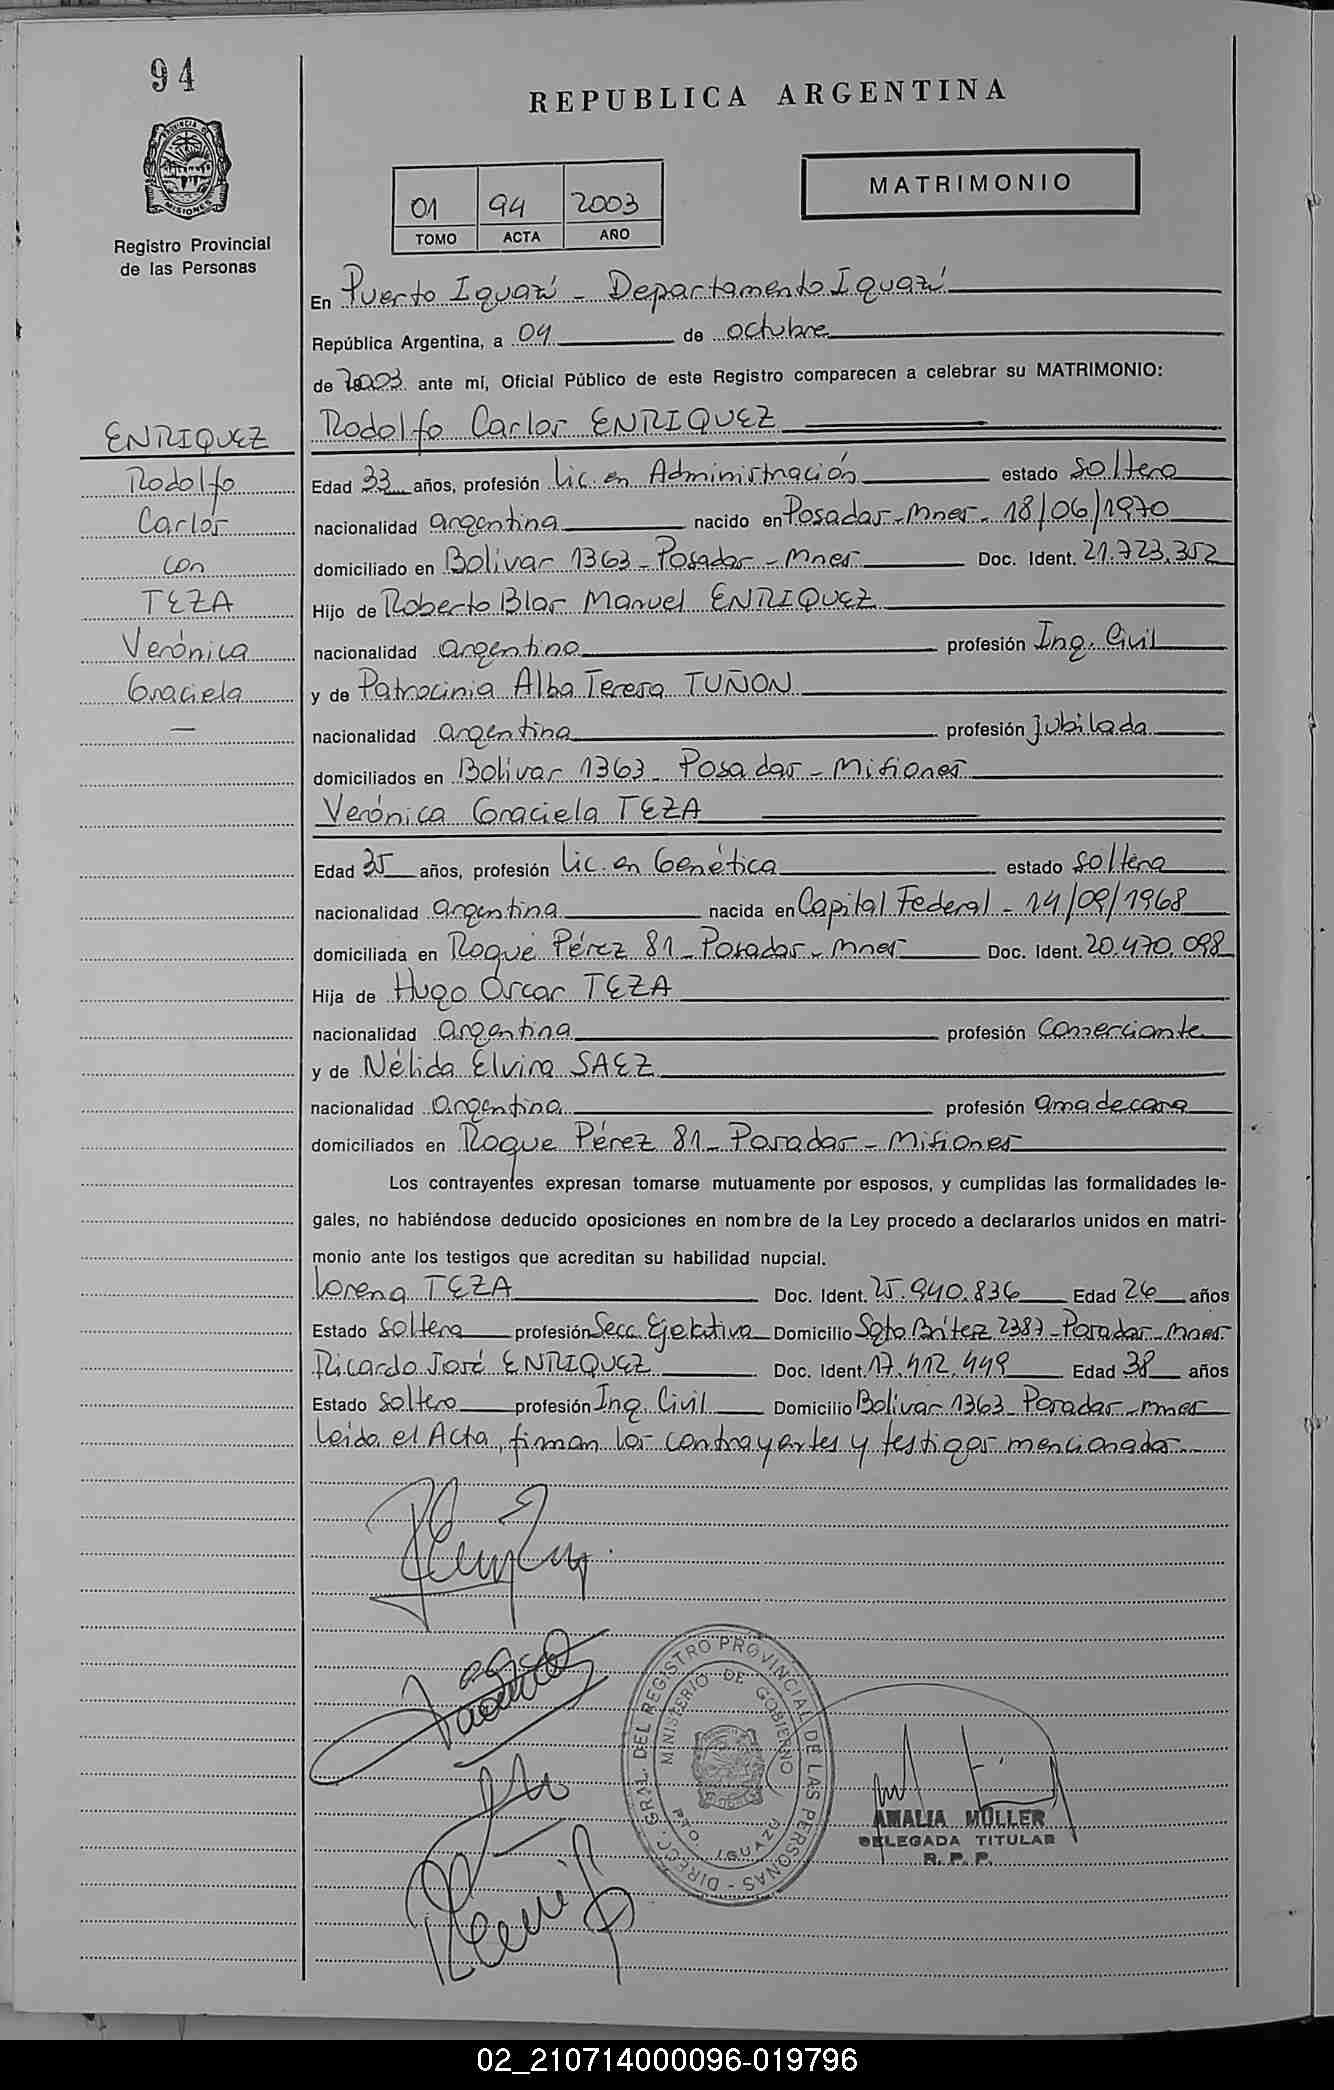 94
PROVINCIA D
MISIONES
Registro Provincial
de las Personas
REPUBLICA ARGENTINA
01 94 2003
TOMO ACTA AÑO
MATRIMONIO
En Puerto Iguazú - Departamento Iguazú
República Argentina, a 04 de octubre
de 2003 ante mí, Oficial Público de este Registro comparecen a celebrar su MATRIMONIO:
ENRIQUEZ
Rodolfo
Carlos
con
TEZA
Verónica
Graciela
—
Rodolfo Carlos ENRIQUEZ
Edad 33 años, profesión Lic. en Administración estado soltero
nacionalidad argentina nacido en Posadas - Mnes - 18/06/1970
domiciliado en Bolívar 1363 - Posadas - Mnes Doc. Ident. 21.723.352
Hijo de Roberto Blas Manuel ENRIQUEZ
nacionalidad argentina profesión Ing. Civil
y de Patrocinia Alba Teresa TUÑON
nacionalidad argentina profesión jubilada
domiciliados en Bolívar 1363 - Posadas - Misiones
Verónica Graciela TEZA
Edad 35 años, profesión Lic. en Genética estado soltera
nacionalidad argentina nacida en Capital Federal - 14/09/1968
domiciliada en Roque Pérez 81 - Posadas - Mnes Doc. Ident. 20.470.098
Hija de Hugo Oscar TEZA
nacionalidad argentina profesión comerciante
y de Nélida Elvira SAEZ
nacionalidad argentina profesión ama de casa
domiciliados en Roque Pérez 81 - Posadas - Misiones
Los contrayentes expresan tomarse mutuamente por esposos, y cumplidas las formalidades le-
gales, no habiéndose deducido oposiciones en nombre de la Ley procedo a declararlos unidos en matri-
monio ante los testigos que acreditan su habilidad nupcial.
Lorena TEZA Doc. Ident. 25.940.836 Edad 26 años
Estado soltera profesión Secc. Ejecutiva Domicilio Sgto Brítez 2387 - Posadas - Mnes
Ricardo José ENRIQUEZ Doc. Ident. 17.412.449 Edad 38 años
Estado soltero profesión Ing. Civil Domicilio Bolívar 1363 - Posadas - Mnes
Leída el Acta, firman los contrayentes y testigos mencionados
DIRECC. GRAL. DEL REGISTRO PROVINCIAL DE LAS PERSONAS -
MINISTERIO DE GOBIERNO
PTO. IGUAZU
AMALIA MÜLLER
DELEGADA TITULAR
R. P. P.
02_210714000096-019796